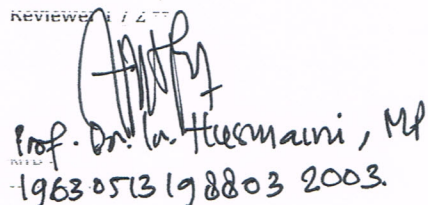 Reviewer 1 / 2 **
Prof. Dr. Ir. Husmaini, MP
NIP.
19630513 198803 2003.